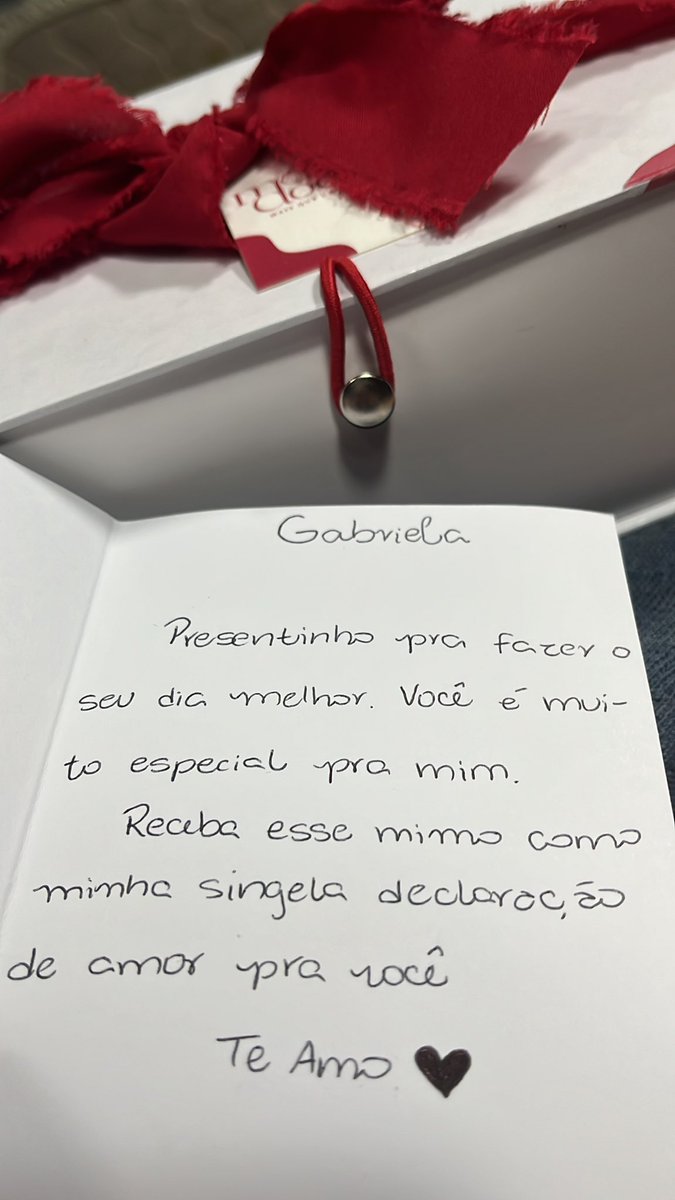 Gabriela
Presentinho pra fazer o
seu dia melhor. Você é mui-
to especial pra mim.
Receba esse mimo como
minha singela declaração
de amor pra você
Te Amo ♥